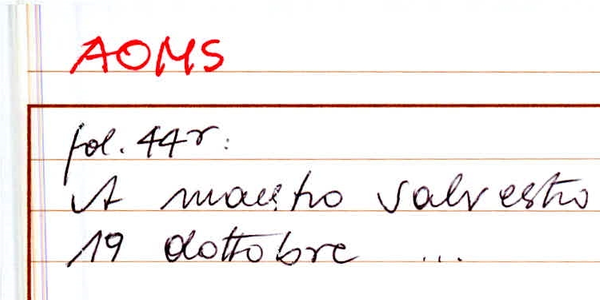 AOMS
fol. 44r:
A maestro Salvestro
19 dottobre ...